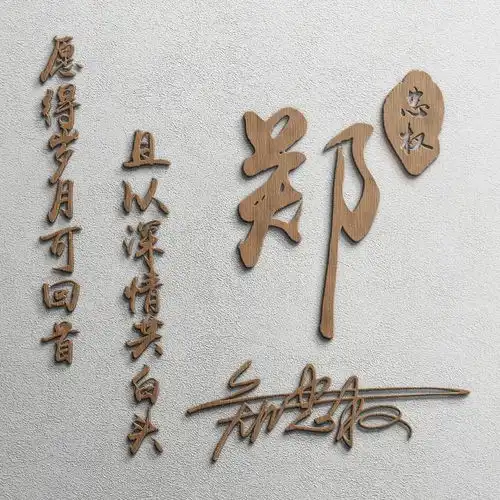 愿得岁月可回首
且以深情共白头
郑
忠权
郑忠权